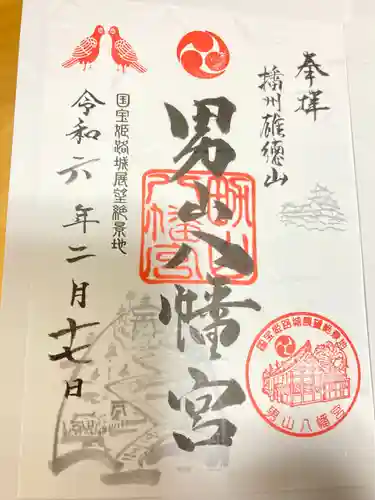 奉拝
播州雄徳山
男山八幡宮
国宝姫路城展望絶景地
令和六年二月十七日
男山八幡宮
国宝姫路城展望絶景地
男山八幡宮